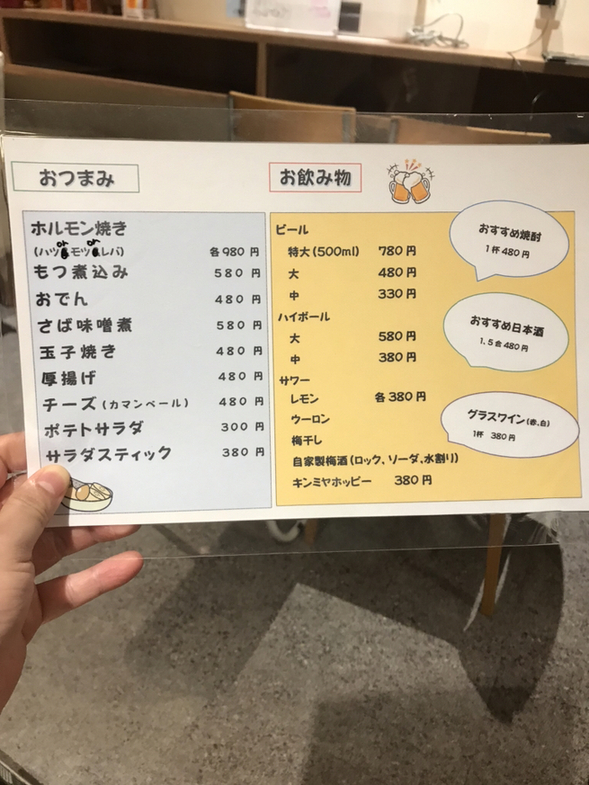 おつまみ
ホルモン焼き
(ハツorモツorレバ) 各980円
もつ煮込み 580円
おでん 480円
さば味噌煮 580円
玉子焼き 480円
厚揚げ 480円
チーズ(カマンベール) 480円
ポテトサラダ 300円
サラダスティック 380円
お飲み物
ビール
特大(500ml) 780円
大 480円
中 330円
ハイボール
大 580円
中 380円
サワー
レモン 各380円
ウーロン
梅干し
自家製梅酒(ロック、ソーダ、水割り)
キンミヤホッピー 380円
おすすめ焼酎
1杯480円
おすすめ日本酒
1.5合480円
グラスワイン(赤、白)
1杯 380円